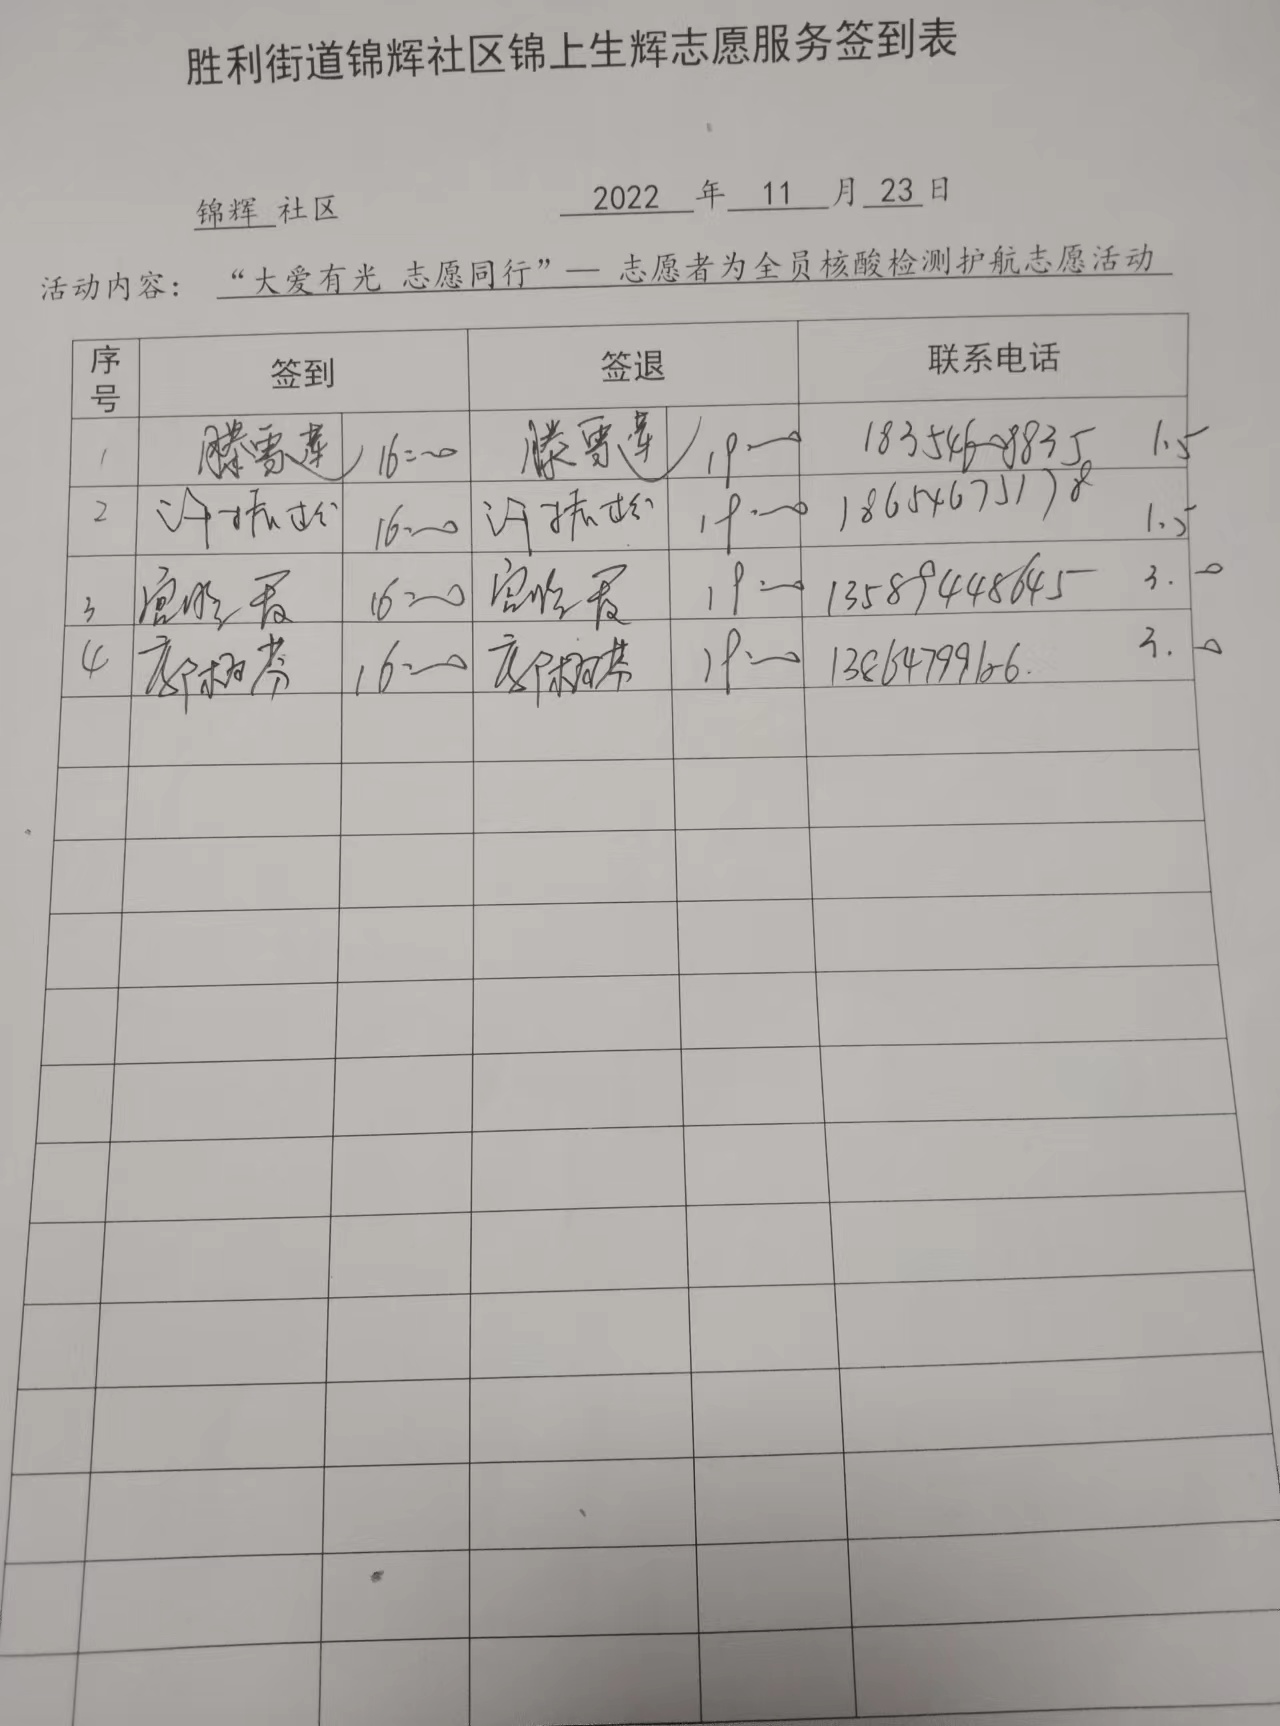 胜利街道锦辉社区锦上生辉志愿服务签到表
锦辉 社区 2022 年 11 月 23 日
活动内容： “大爱有光 志愿同行”— 志愿者为全员核酸检测护航志愿活动
序号 签到 签退 联系电话
1 滕雪莲 16:00 滕雪莲 19:00 1.5
2 许振 16:00 许振 19:00 18654673178 1.5
3 宫 霞 16:00 宫 霞 19:00 13589448645 3.0
4 16:00 19:00 3.0